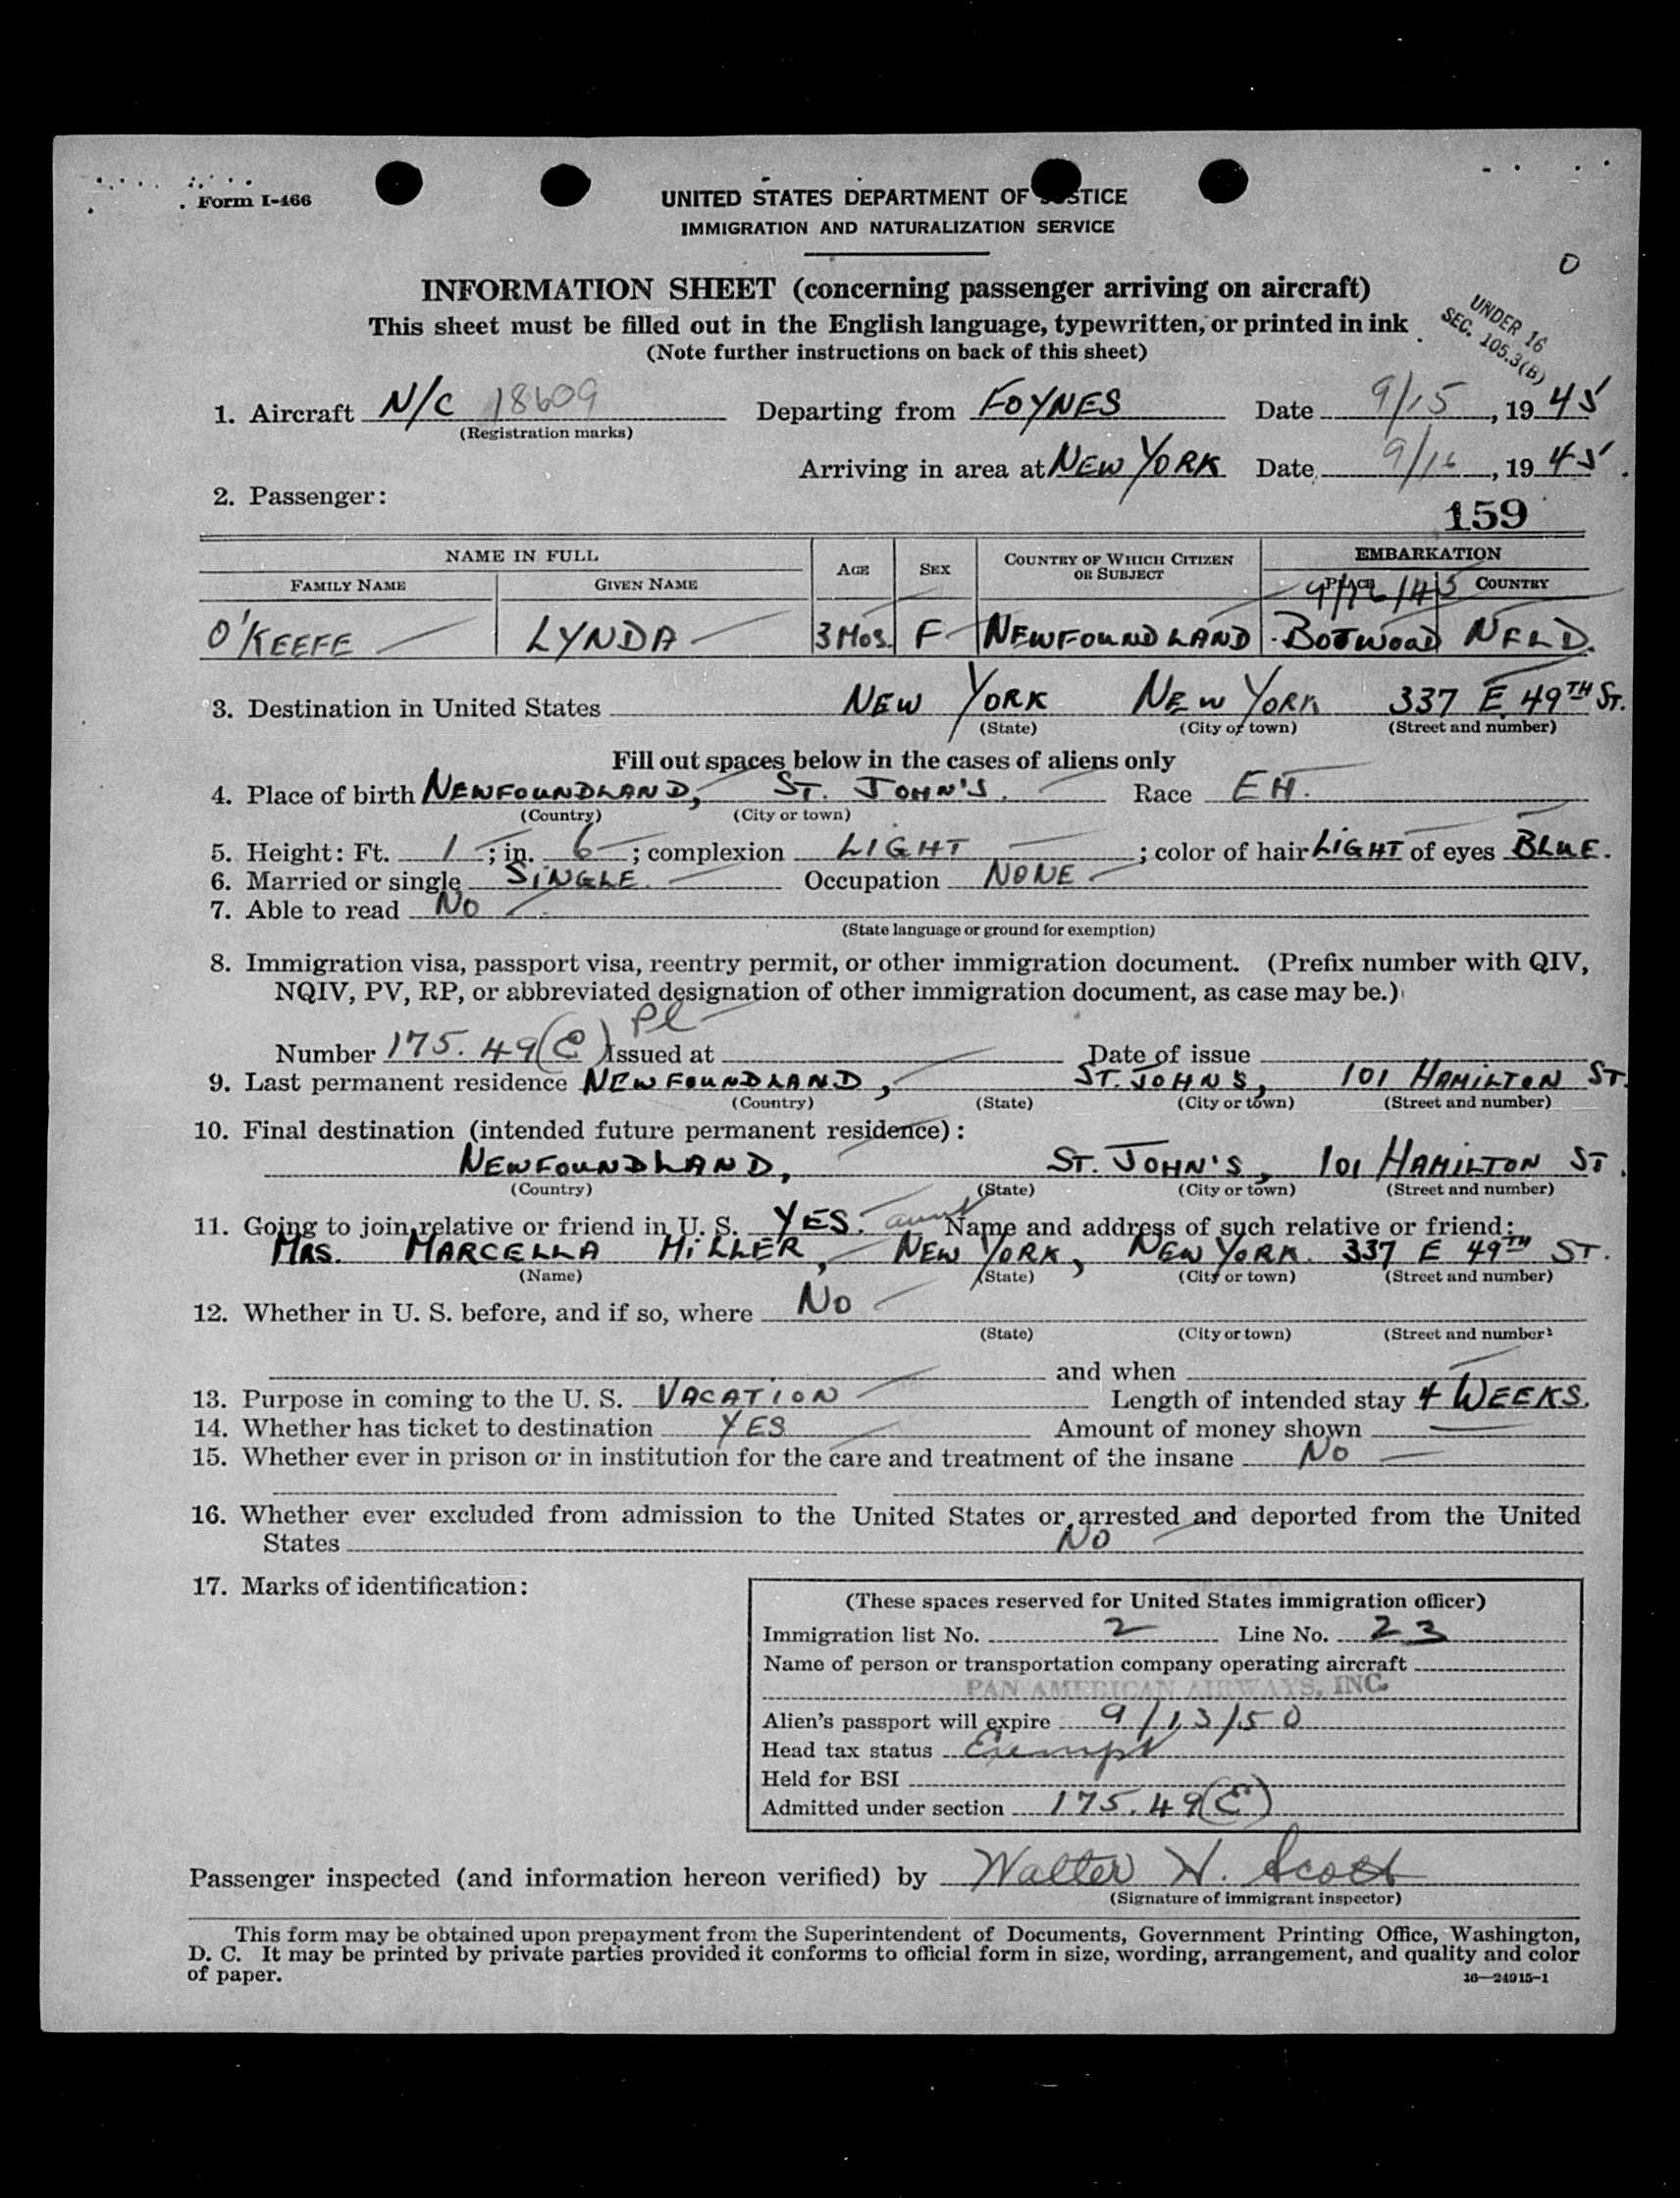 Form I-466
UNITED STATES DEPARTMENT OF JUSTICE
IMMIGRATION AND NATURALIZATION SERVICE
O
INFORMATION SHEET (concerning passenger arriving on aircraft)
This sheet must be filled out in the English language, typewritten, or printed in ink
(Note further instructions on back of this sheet)
UNDER 16
SEC. 105.3(B)
1. Aircraft N/C 18609 Departing from FOYNES Date 9/15, 1945
(Registration marks)
Arriving in area at NEW YORK Date 9/16, 1945.
2. Passenger:
159
NAME IN FULL AGE SEX COUNTRY OF WHICH CITIZEN OR SUBJECT EMBARKATION
FAMILY NAME GIVEN NAME PLACE COUNTRY
9/16/45
O'KEEFE LYNDA 3 MOS. F NEWFOUNDLAND BOTWOOD NFLD.
3. Destination in United States NEW YORK NEW YORK 337 E 49TH ST.
(State) (City or town) (Street and number)
Fill out spaces below in the cases of aliens only
4. Place of birth NEWFOUNDLAND, ST. JOHN'S. Race EH.
(Country) (City or town)
5. Height: Ft. 1; in. 6; complexion LIGHT; color of hair LIGHT of eyes BLUE.
6. Married or single SINGLE. Occupation NONE
7. Able to read NO
(State language or ground for exemption)
8. Immigration visa, passport visa, reentry permit, or other immigration document. (Prefix number with QIV,
NQIV, PV, RP, or abbreviated designation of other immigration document, as case may be.)
Pl
Number 175.49(E) Issued at Date of issue
9. Last permanent residence NEWFOUNDLAND, ST. JOHNS, 101 HAMILTON ST.
(Country) (State) (City or town) (Street and number)
10. Final destination (intended future permanent residence):
NEWFOUNDLAND, ST. JOHN'S, 101 HAMILTON ST.
(Country) (State) (City or town) (Street and number)
11. Going to join relative or friend in U. S. YES. aunt Name and address of such relative or friend:
MRS. MARCELLA HILLER, NEW YORK, NEW YORK. 337 E 49TH ST.
(Name) (State) (City or town) (Street and number)
12. Whether in U. S. before, and if so, where NO
(State) (City or town) (Street and number)
and when
13. Purpose in coming to the U. S. VACATION Length of intended stay 4 WEEKS.
14. Whether has ticket to destination YES Amount of money shown —
15. Whether ever in prison or in institution for the care and treatment of the insane NO
16. Whether ever excluded from admission to the United States or arrested and deported from the United
States NO
17. Marks of identification:
(These spaces reserved for United States immigration officer)
Immigration list No. 2 Line No. 23
Name of person or transportation company operating aircraft
PAN AMERICAN AIRWAYS, INC.
Alien's passport will expire 9/13/50
Head tax status Exempt
Held for BSI
Admitted under section 175.49(E)
Passenger inspected (and information hereon verified) by Walter H. Scott
(Signature of immigrant inspector)
This form may be obtained upon prepayment from the Superintendent of Documents, Government Printing Office, Washington,
D. C. It may be printed by private parties provided it conforms to official form in size, wording, arrangement, and quality and color
of paper.
16—24915-1